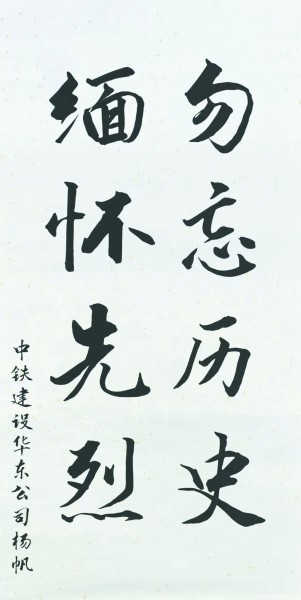 勿忘历史
缅怀先烈
中铁建设华东公司杨帆